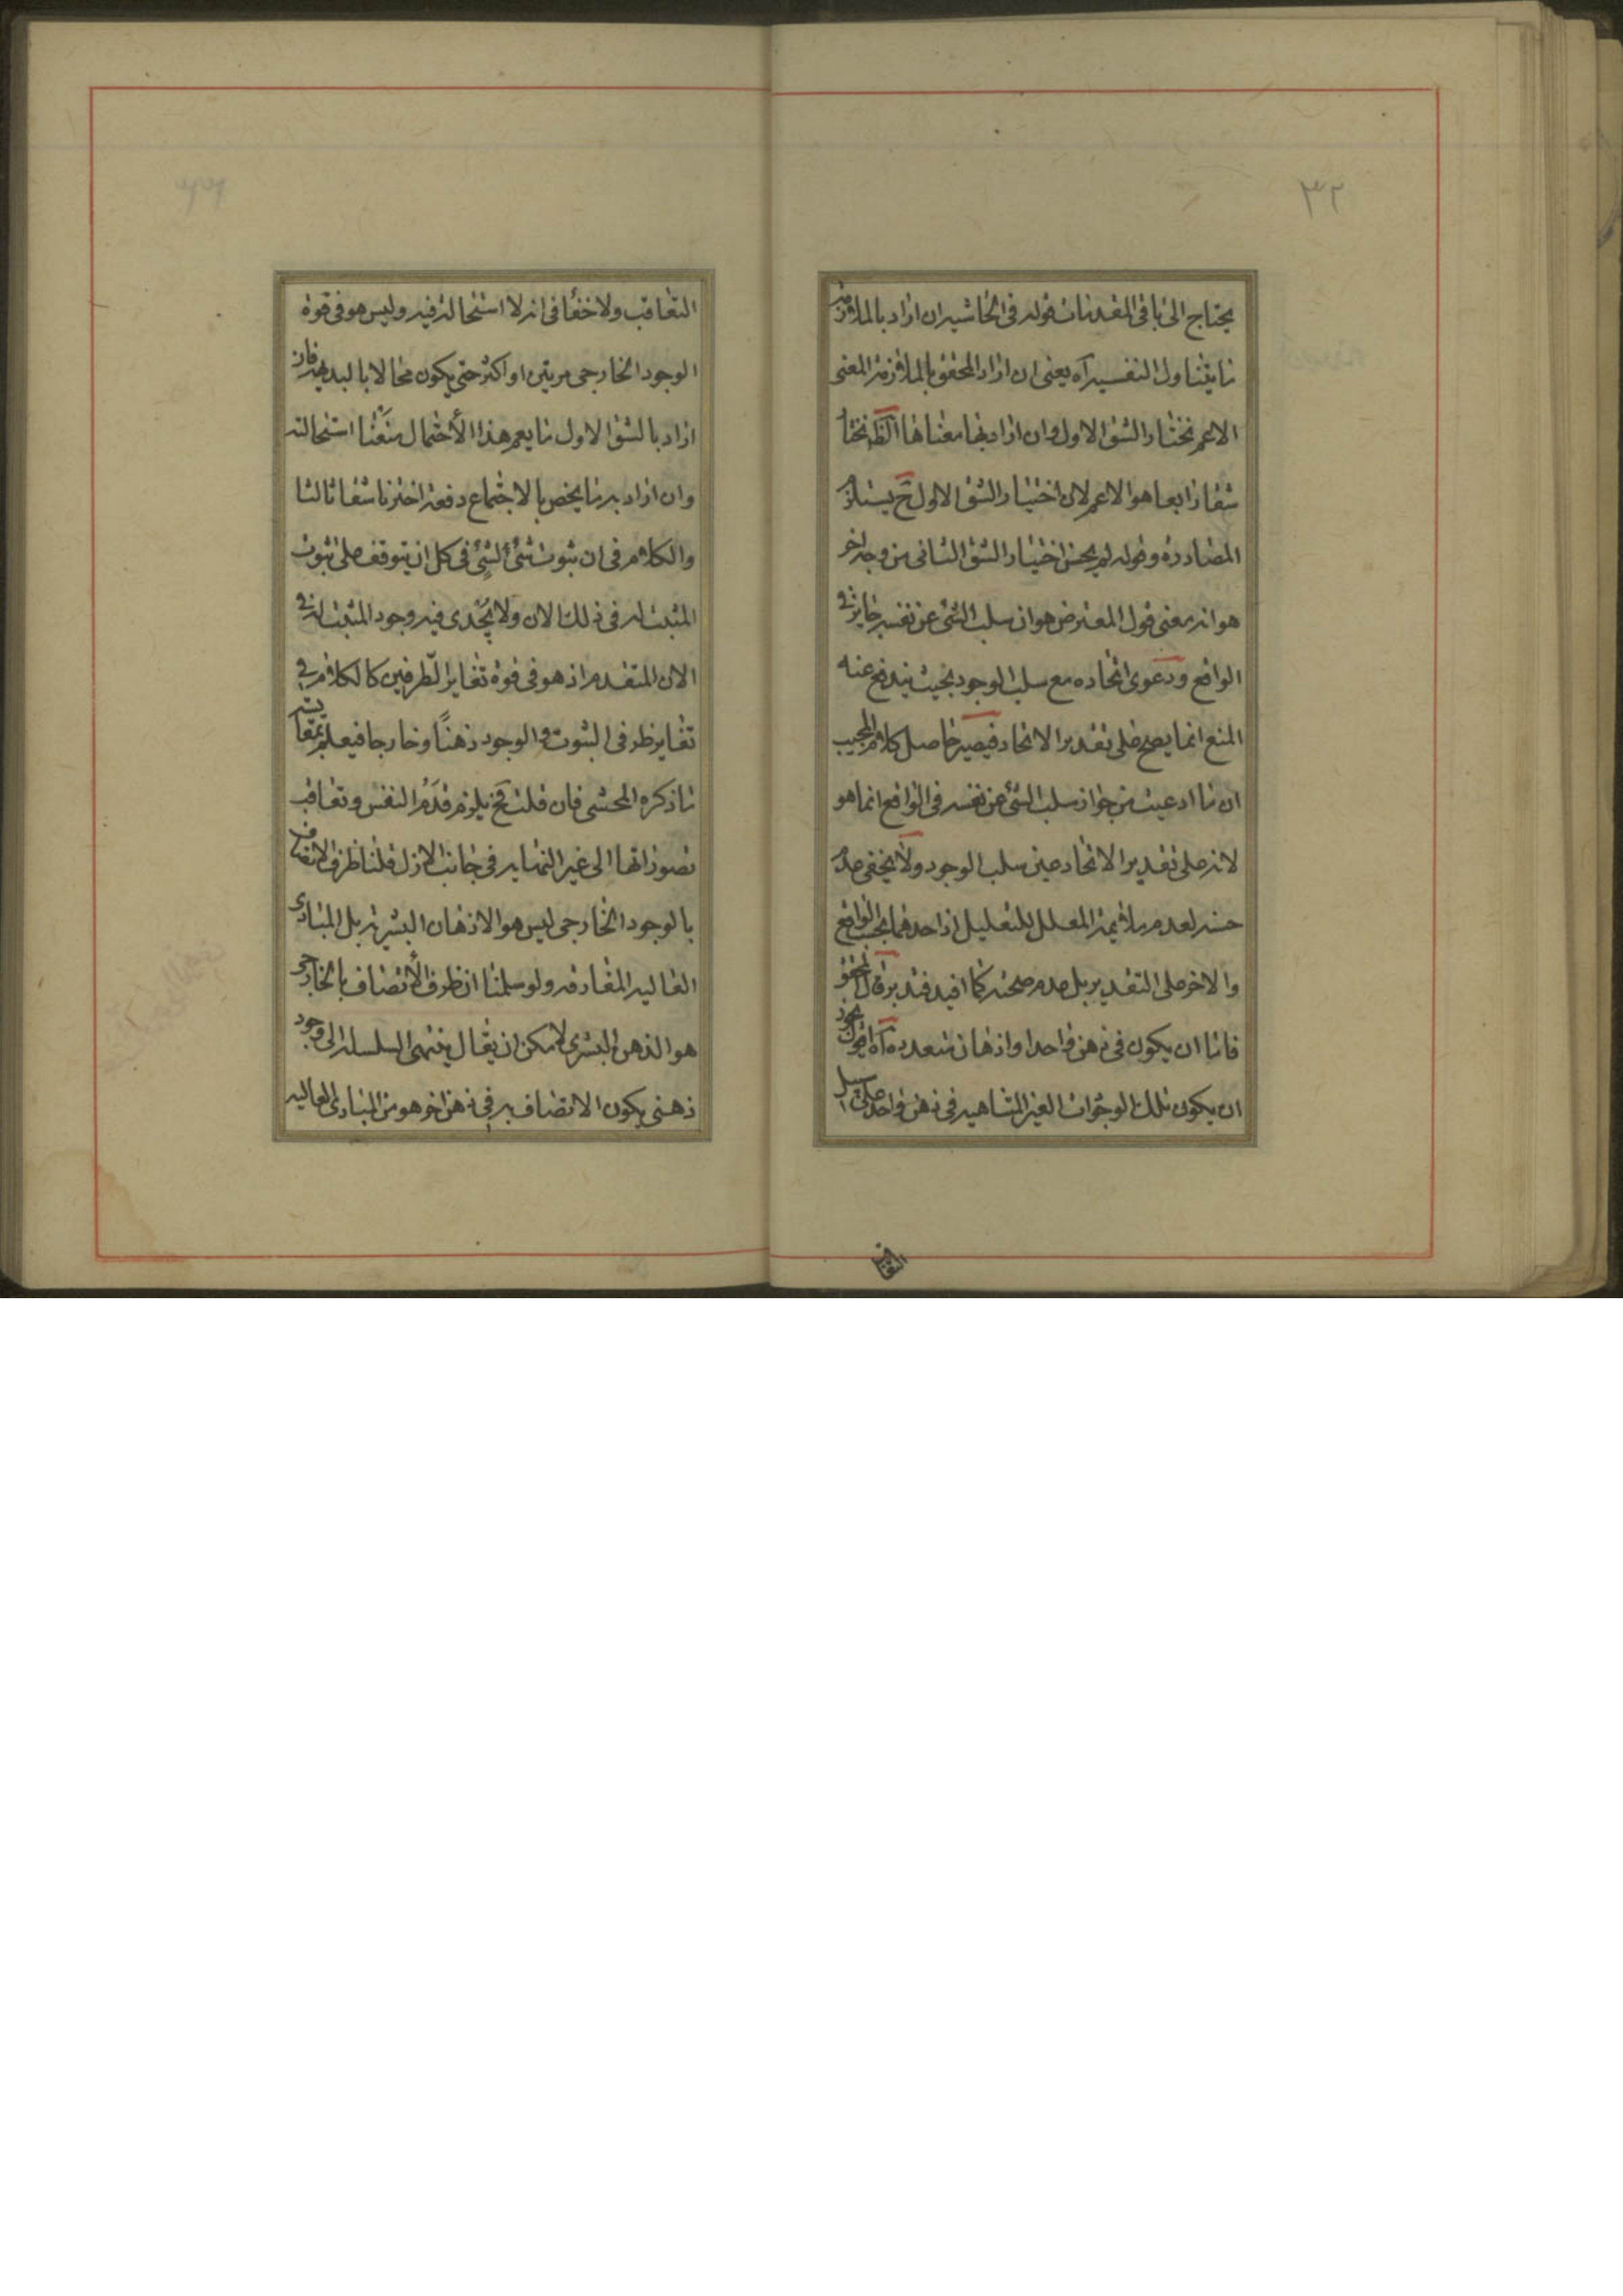 ٣٢
يحتاج الى باقى المقدمات قوله فى الحاشيه ان اراد بالملازمة
ما يتناول التفسير آه يعنى ان اراد المحقق بالملازمة المعنى
الاعم نختار الشق الاول وان اراد بها معناها الظ نختار
شقا رابعا هو الاعم لان اختيار الشق الاول ح يستلزم
المصادره وقوله لم يحسن اختيار الشق الثانى من وجه اخر
هو انه معنى قول المعترض هو ان سلب الشئ عن نفسه جايز فى
الواقع ودعوى اتحاده مع سلب الوجود بحيث يندفع عنه
المنع انما يصح على تقدير الاتحاد فيصير حاصل كلام المجيب
ان ما ادعيت من جواز سلب الشئ عن نفسه فى الواقع انما هو
لانه على تقدير الاتحاد عين سلب الوجود ولا يخفى عدم
حسنه لعدم ملائمة المعلل للتعليل اذ احدهما بحسب الواقع
والاخر على التقدير بل عدم صحته كما افيد فتدبر قال المحقق
فاما ان يكون فى ذهن واحد او اذهان متعدده آه اقول يجوز
ان يكون تلك الوجودات الغير المتناهيه فى ذهن واحد على سبيل
التعاقب
التعاقب ولا خفأ فى انه لا استحالة فيه وليس هو فى قوة
الوجود الخارجى مرتين او اكثر حتى يكون محالا بالبديهة فان
اراد بالشق الاول ما يعم هذا الأحتمال منعنا استحالته
وان اراد به ما يخص بالاجتماع دفعة اخترنا شقا ثالثا
والكلام فى ان ثبوت شئ الشئ فى كل ان يتوقف على ثبوت
المثبت له فى ذلك الان ولا يجدى فيه وجود المثبت له فى
الان المتقدم اذ هو فى قوة تغاير الطرفين كالكلام فى
تغاير ظرفى الثبوت والوجود ذهنا وخارجا فيعلم بمقايسته
ما ذكره المحشى فان قلت فح يلزم قدم النفس وتعاقب
تصوراتها الى غير النهايه فى جانب الازل قلنا ظرف الاتصاف
بالوجود الخارجى ليس هو الاذهان البشرية بل المبادى
العاليه المفارقه ولو سلمنا ان ظرف الأتصاف بالخارجى
هو الذهن البشرى لامكن ان يقال ينتهى السلسلة الى وجود
ذهنى يكون الاتصاف به فى ذهن اخر هو من المبادى العاليه